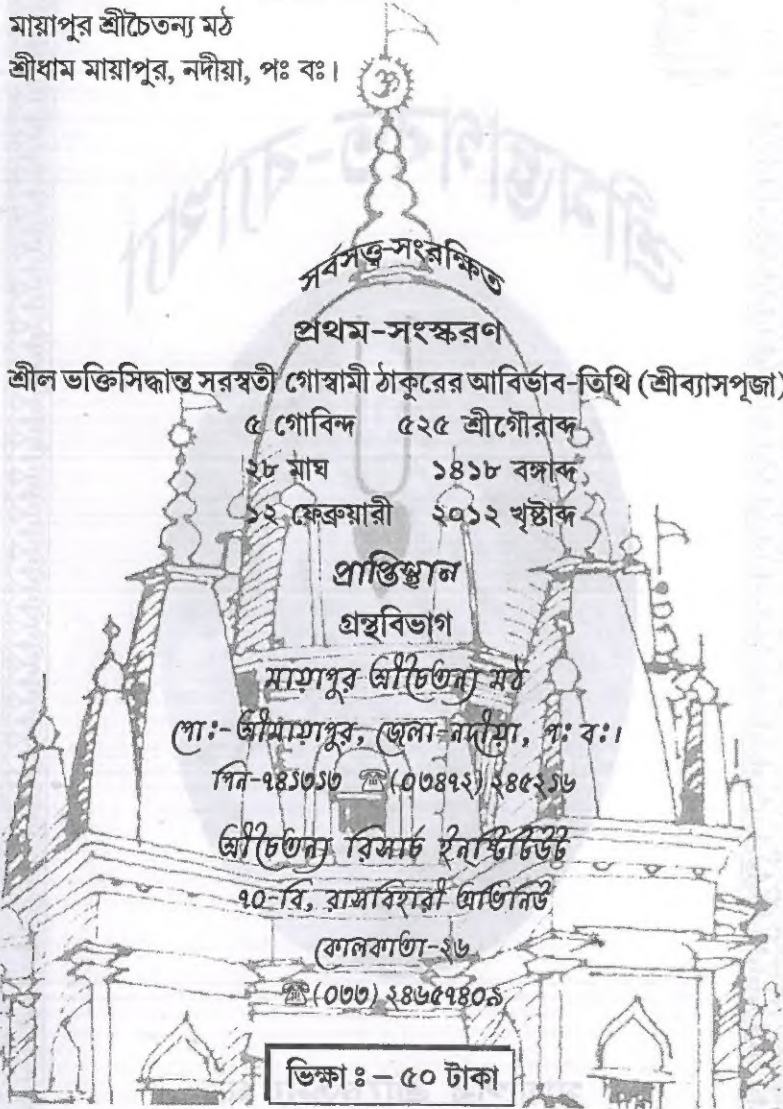 মায়াপুর শ্রীচৈতন্য মঠ
শ্রীধাম মায়াপুর, নদীয়া, পঃ বঃ।
ॐ
সর্বসত্ত্ব-সংরক্ষিত
প্রথম-সংস্করণ
শ্রীল ভক্তিসিদ্ধান্ত সরস্বতী গোস্বামী ঠাকুরের আবির্ভাব-তিথি (শ্রীব্যাসপূজা)
৫ গোবিন্দ ৫২৫ শ্রীগৌরাব্দ
২৮ মাঘ ১৪১৮ বঙ্গাব্দ
১২ ফেব্রুয়ারী ২০১২ খৃষ্টাব্দ
প্রাপ্তিস্থান
গ্রন্থবিভাগ
মায়াপুর শ্রীচৈতন্য মঠ
পো:-শ্রীমায়াপুর, জেলা-নদীয়া, প: ব:।
পিন-৭৪১৩১৩ ☎(০৩৪৭২) ২৪৫২১৬
শ্রীচৈতন্য রিসার্চ ইনষ্টিটিউট
৭০-বি, রাসবিহারী অ্যাভিনিউ
কোলকাতা-২৬
☎(০৩৩) ২৪৬৫৭৪০৯
ভিক্ষা ঃ – ৫০ টাকা